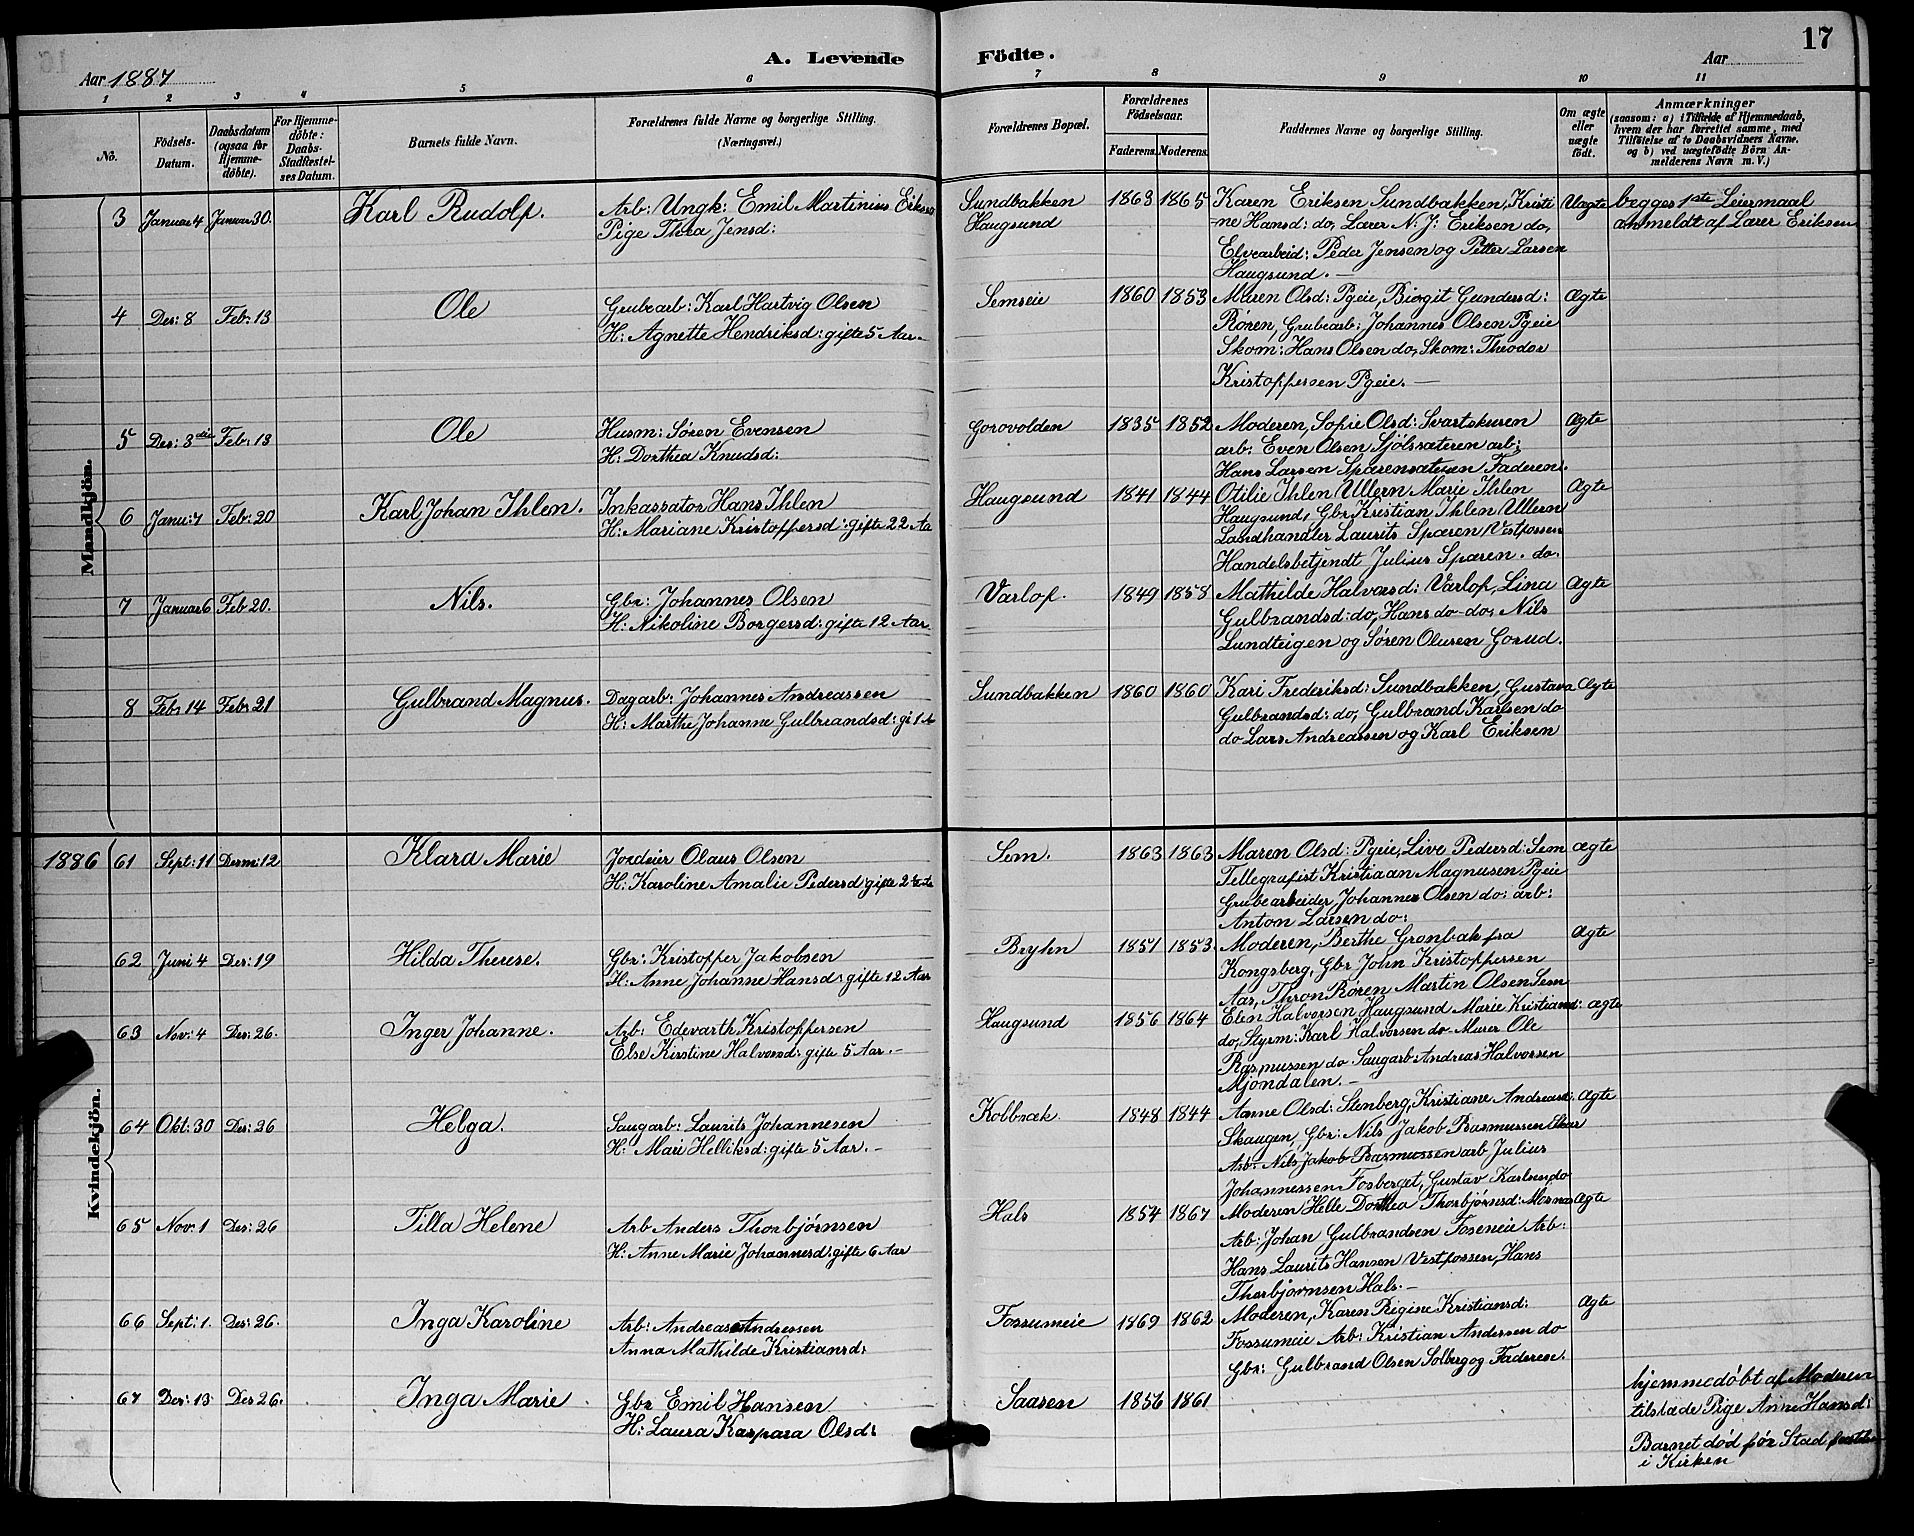 17
A. Levende Födte.
Aar 1887
Aar
1 2 3 4 5 6 7 8 9 10 11
No.
Födsels-Datum.
Daabsdatum (ogsaa for Hjemme-döbte).
For Hjemme-döbte: Daabs-Stadfæstel-ses Datum.
Barnets fulde Navn.
Forældrenes fulde Navne og borgerlige Stilling. (Næringsvei.)
Forældrenes Bopæl.
Forældrenes Födselsaar.
Faderens. Moderens.
Faddernes Navne og borgerlige Stilling.
Om ægte eller uægte födt.
Anmærkninger (saasom: a) i Tilfælde af Hjemmedaab, hvem der har forrettet samme, med Tilföielse af to Daabsvidners Navne, og b) ved uægtefödte Börn An-melderens Navn m. V.)
Mandkjön.
3 Januar 4 Januar 30. Karl Rudolf. Arb: Ungk: Emil Martinius Eriksen Sundbakken 1863 1865 Karen Eriksen Sundbakken, Kristi Uægte begges 1ste Leiermaal
Pige Thea Jensd: Haugsund ne Hansd: do, Lærer N. J. Eriksen do, anmeldt af Lærer Eriksen
Elvearbeid: Peder Jensen og Petter Larsen
Haugsund. —
4 Des: 8 Feb: 13 Ole Grubearb: Karl Hartvig Olsen Semseie 1860 1853 Maren Olsd: Pgeie, Birgit Gundersd: Ægte
H: Agnette Hendriksd: gifte 5 Aar. Røren, Grubearb: Johannes Olsen Pgeie
Skom: Hans Olsen do, Skom: Theodor
Kristoffersen Pgeie. —
5 Des: 3die Feb: 13 Ole Husm: Søren Evensen Gorovolden 1835 1852 Moderen, Sofie Olsd: Svartskuren Ægte
H: Dorthea Knudsd: arb: Even Olsen Sjölssæteren arb:
Hans Larsen Sparensæteren Faderen.
6 Janu: 7 Feb: 20 Karl Johan Ihlen. Inkassator Hans Ihlen Haugsund 1841 1844 Otilie Ihlen Ullern Marie Ihlen Ægte
H: Mariane Kristoffersd: gifte 22 Aa Haugsund, Gbr Kristian Ihlen Ullern
Landhandler Laurits Sparen Vestfossen
Handelsbetjendt Julius Sparen. do.
7 Januar 6 Feb 20. Nils. Gbr: Johannes Olsen Varlof. 1849 1858 Mathilde Halvorsd: Varlof, Lina Ægte
H: Nikoline Borgersd: gifte 12 Aar Gulbrandsd: do, Hans do-do, Nils
Lundteigen og Søren Olausen Gorud.
8 Feb: 14 Feb: 21 Gulbrand Magnus. Dagarb: Johannes Andreassen Sundbakken 1860 1860 Kari Frederiksd: Sundbakken, Gustava Ægte
H: Marthe Johanne Gulbrandsd: gi 1 A Gulbrandsd: do, Gulbrand Karlsen do
do Lars Andreassen og Karl Eriksen
Kvindekjön.
1886 61 Sept: 11 Desm: 12 Klara Marie Jordeier Olaus Olsen Sem. 1863 1863 Maren Olsd: Pgeie, Live Pedersd: Sem ægte
H: Karoline Amalie Pedersd: gifte 2 Tellegrafist Kristiaan Magnusen Pgeie
Grubearbeider, Johannes Olsen do: arb:
Anton Larsen do:
62 Juni 4 Des: 19 Hilda Therese. Gbr: Kristoffer Jakobsen Bryhn 1851 1853 Moderen, Berthe Grønbak fra Ægte
H: Anne Johanne Hansd: gifte 12 Aar Kongsberg, Gbr John Kristoffersen
Aas, Thron Røren Martin Olsen Sem
63 Nov: 4 Des: 26. Inger Johanne. Arb: Edevarth Kristoffersen Haugsund 1856 1864 Elen Halvorsen Haugsund Marie Kristiand: ægte
Else Kirstine Halvorsd: gifte 5 Aar. – do, Styrm: Karl Halvorsen do Murer Ole
Rasmussen do Saugarb Andreas Halvorsen
Mjöndalen. –
64 Okt: 30 Des: 26 Helga. Saugarb: Laurits Johannesen Kolbræk 1848 1844 Anne Olsd: Stenberg, Kristiane Andreasd: Ægte
H: Mari Helliksd: gifte 5 Aar. – Skaugen, Gbr: Nils Jakob Rasmussen Skar
Arb: Nils Jakob Rasmussen arb Julius
Johannessen Fosberget, Gustav Karlsen do
65 Nov: 1 Des: 26 Tilla Helene Arb Anders Thorbjørnsen Hals 1854 1867 Moderen Helle Dorthea Thorbjørnsd: Mornas Ægte
H: Anne Marie Johannesd: gifte 6 Aar Arb: Johan Gulbrandsen Foseneie Arb:
Hans Laurits Hansen Vestfossen, Hans
Thorbjørnsen Hals. –
66 Sept: 1. Des: 26. Inga Karoline Arb: Andreas Andressen Fossumeie 1869 1862 Moderen, Karen Rigine Kristiansd: Ægte
Anna Mathilde Kristiansd: Fossumeie Arb: Kristian Andersen do
Gbr: Gulbrand Olsen Solberg og Faderen.
67 Des: 13 Des 26. Inga Marie Gbr Emil Hansen Saasen 1856 1861 hjemmedøbt af Moderen
H: Laura Kaspara Olsd: tilstæde Pige Anne Hansd:
Barnet død før Stad
i Kirken